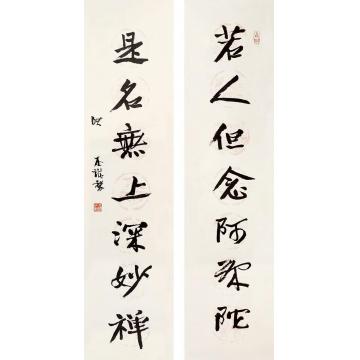 若人但念阿弥陀
是名無上深妙禅